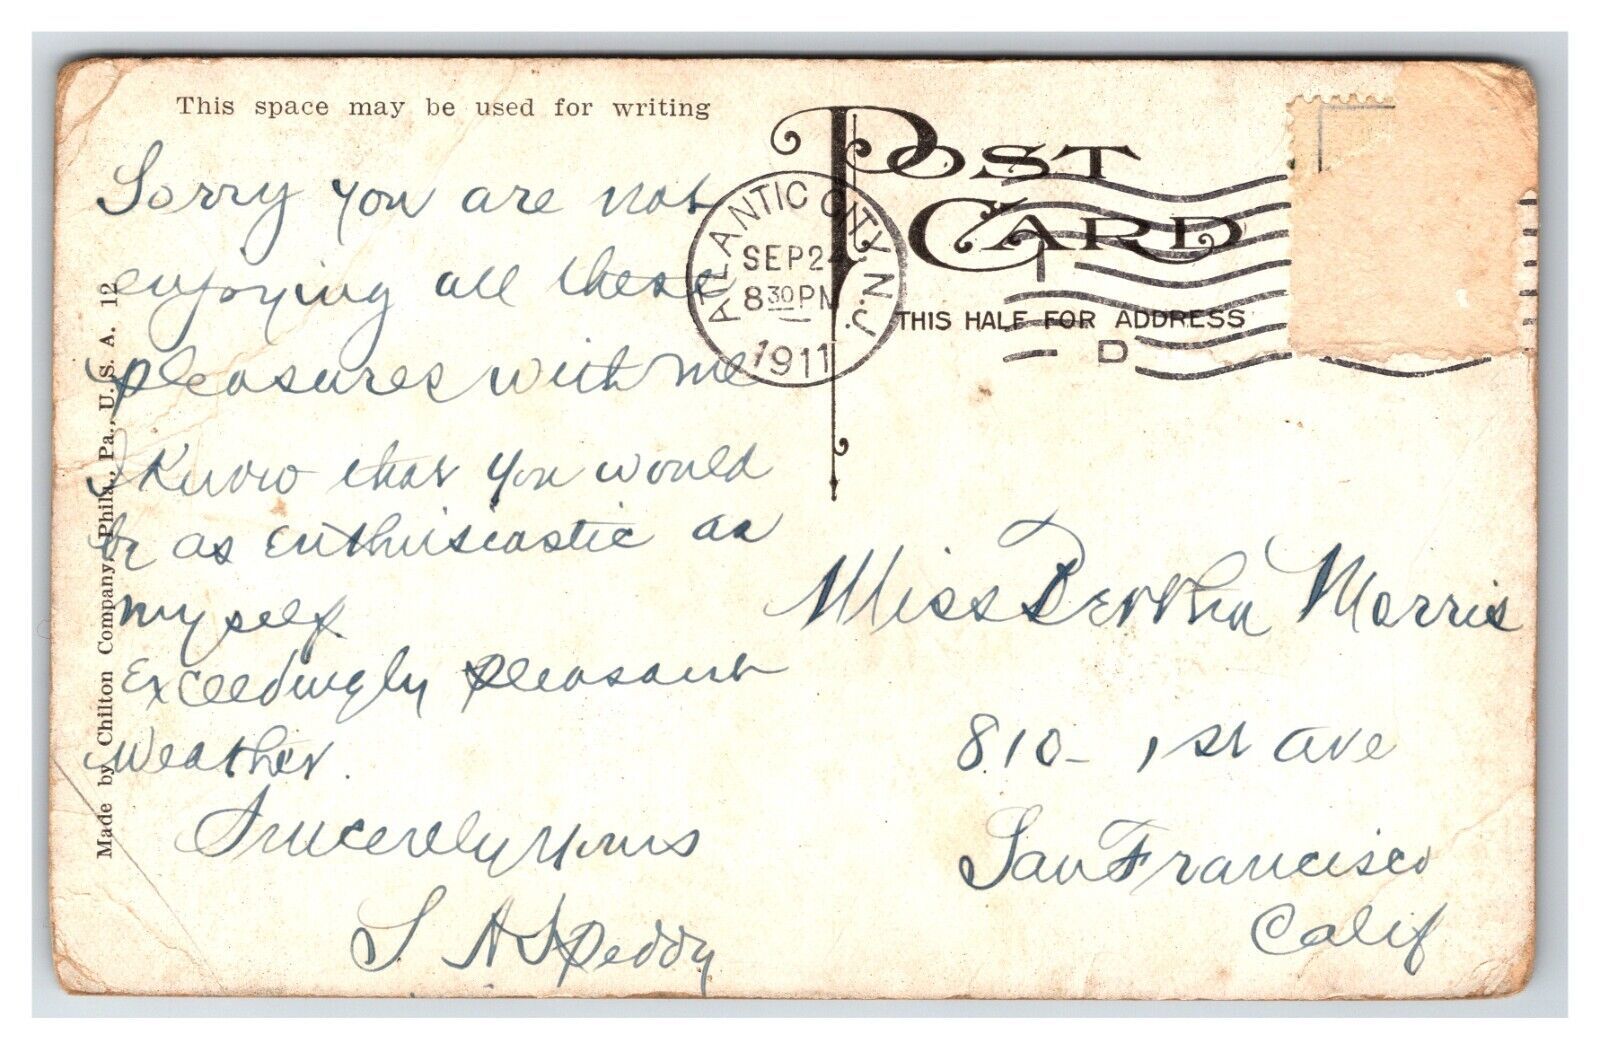 This space may be used for writing
Sorry you are not
enjoying all these
pleasures with me
I Know that you would
be as enthusiastic as
myself.
Exceedingly pleasant
Weather.
Sincerely yours
Made by Chilton Company, Phila., Pa., U. S. A. 12
POST
CARD
THIS HALF FOR ADDRESS
ATLANTIC CITY N.J.
SEP 24
8 30 PM
1911
D
Miss Bertha Morris
810 - 1st Ave
San Francisco
Calif